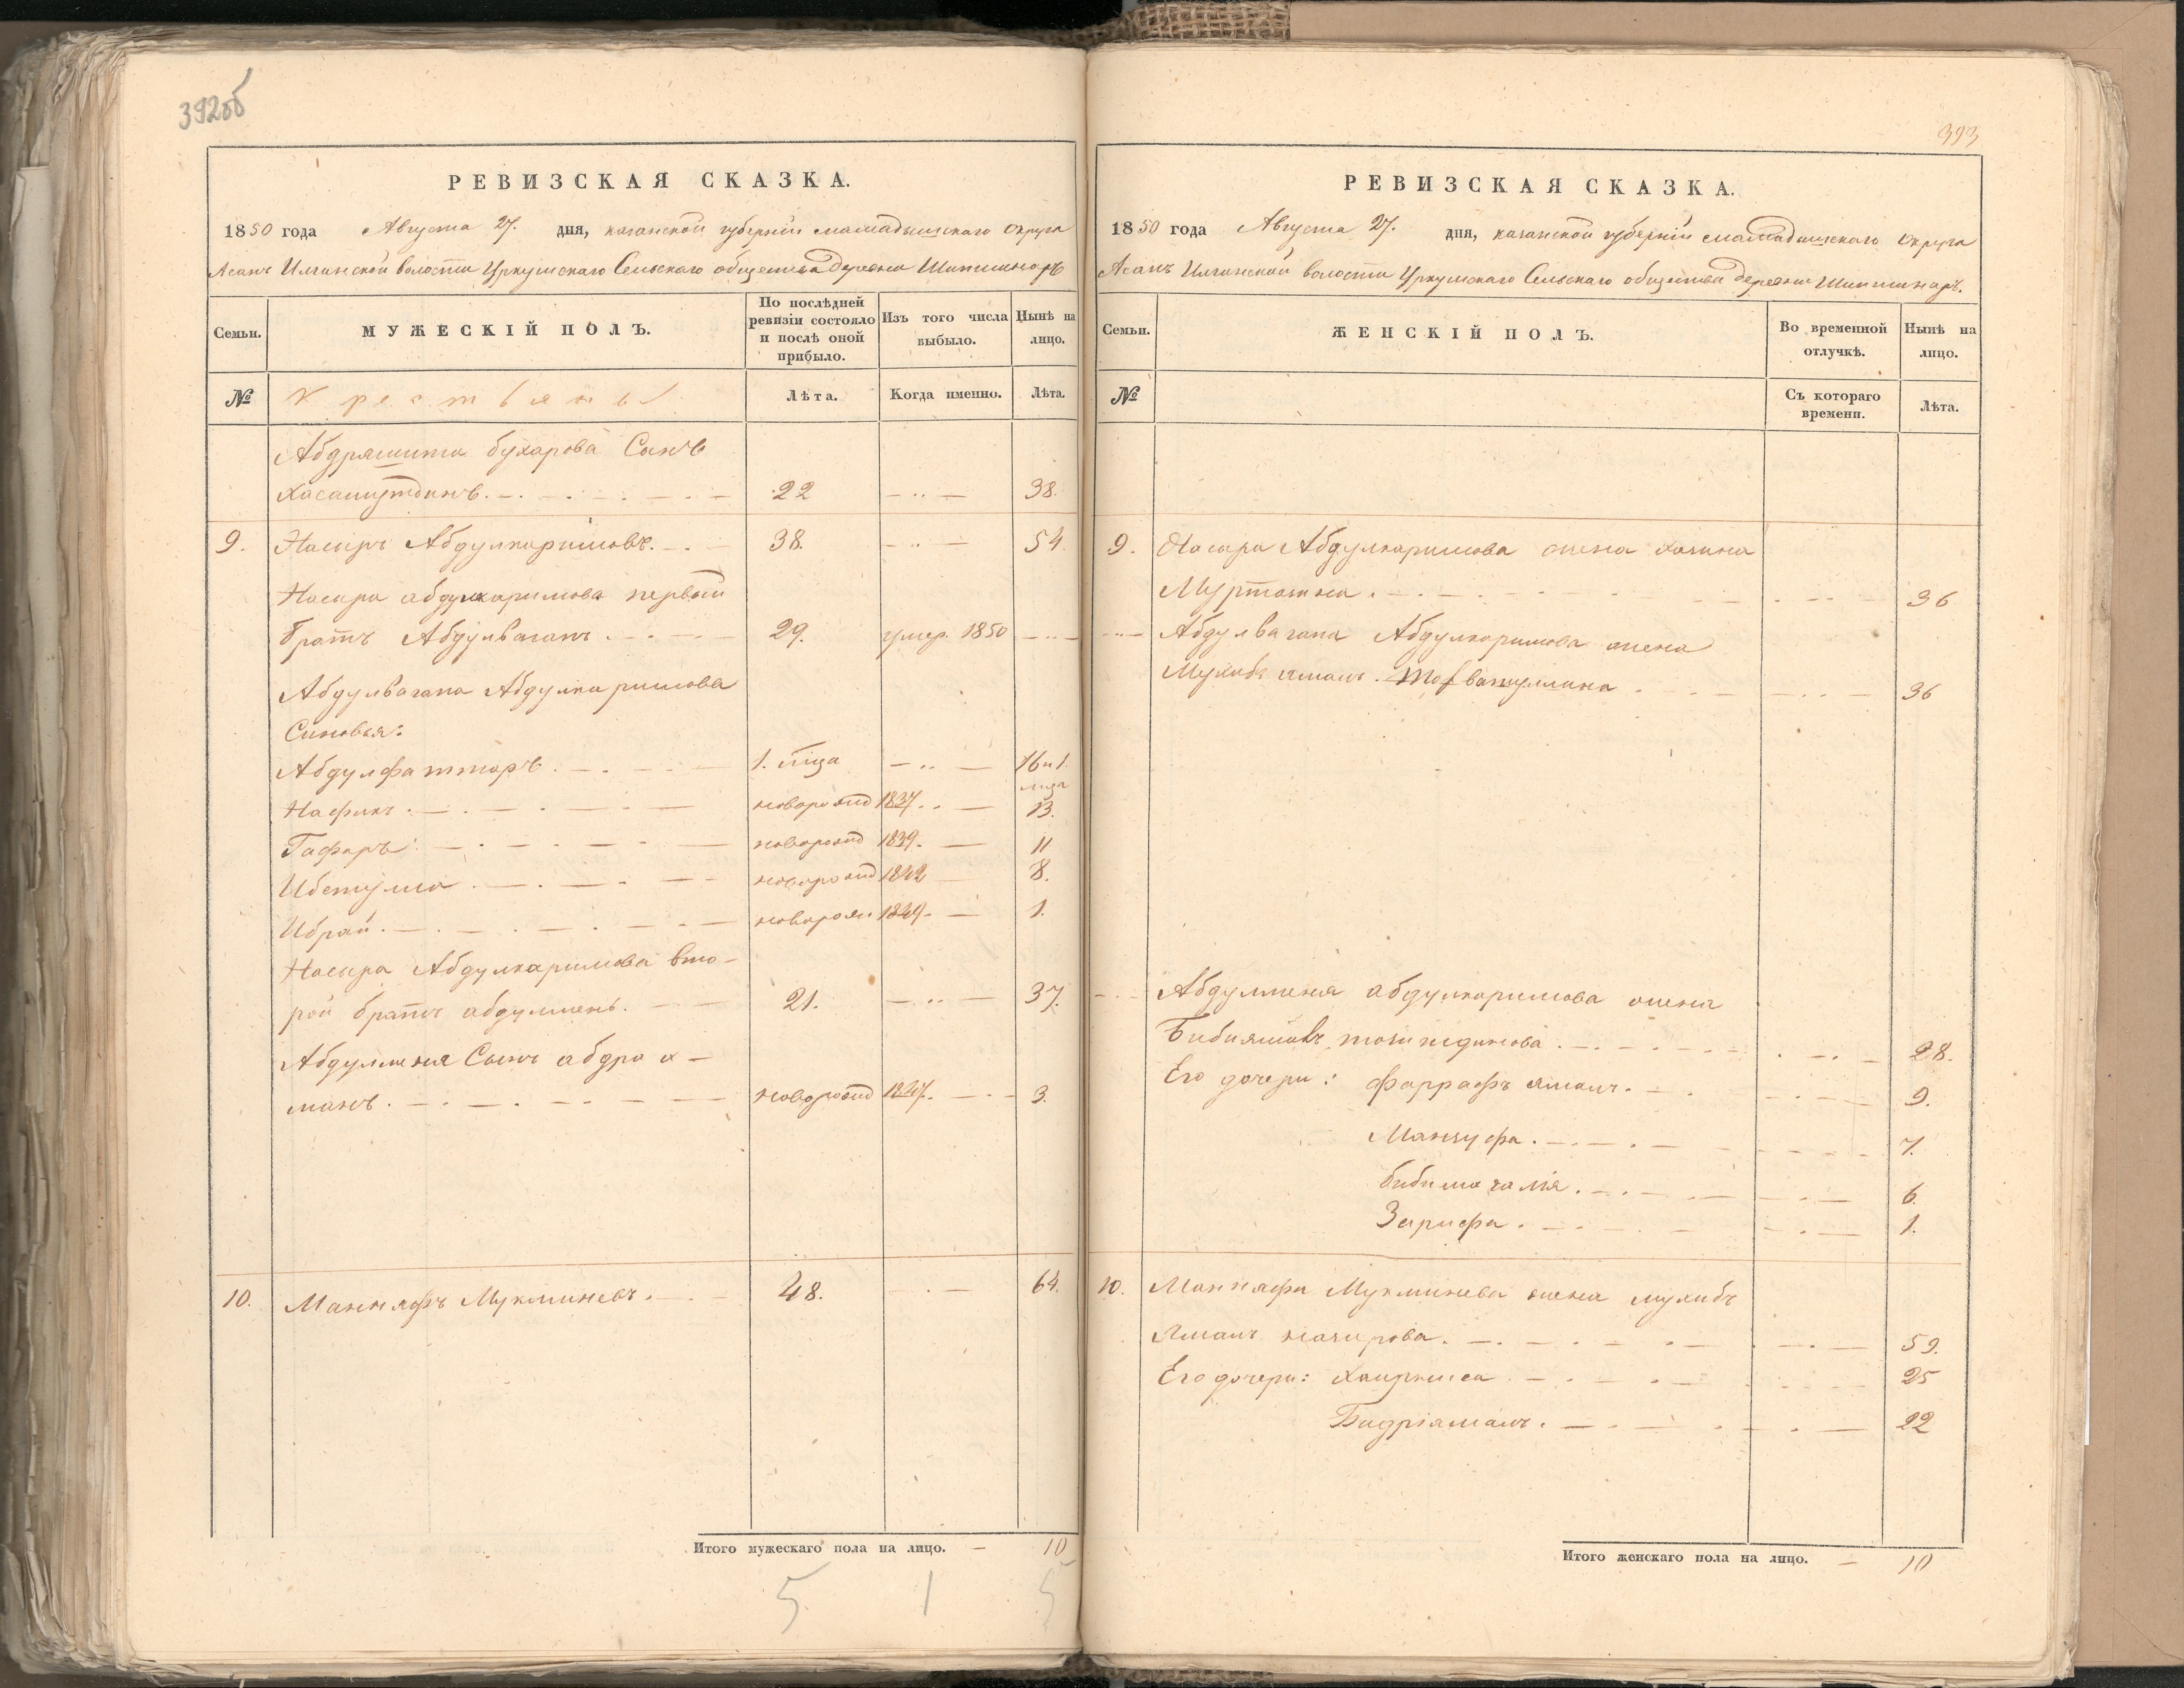 392об
РЕВИЗСКАЯ СКАЗКА.
1850 года Августа 27. дня, казанской губерніи мамадышскаго округа
Асанъ Илганской волости Уркушскаго Сельскаго общества деревни Шипшнаръ
Семьи.
МУЖЕСКІЙ ПОЛЪ.
По послѣдней ревизіи состояло и послѣ оной прибыло.
Изъ того числа выбыло.
Нынѣ на лицо.
№
Крестьяны
Лѣта.
Когда именно.
Лѣта.
Абдряшита бухарова Сынъ
Хасамутдинъ. 22 38.
9. Насыръ Абдулкаримовъ. 38. 54.
Насыра абдулкаримова первый
братъ Абдулвагапъ. 29. умер. 1850
Абдулвагапа Абдулкаримова
Сыновья:
Абдулфатторъ. 1. мца 16 и 1. мца
Нафикъ. новорожд 1837. 13.
Гафаръ. новорожд 1839. 11
Ибетулла. новорожд 1842 8.
Ибрай. новорож 1849. 1.
Насыра Абдулкаримова вто-
рой братъ абдулменъ. 21. 37.
Абдулменя Сынъ абдрах-
манъ. новорожд 1847. 3.
10. Маннафъ Мукминевъ. 48. 64.
Итого мужескаго пола на лицо. 10
5 1 5
393
РЕВИЗСКАЯ СКАЗКА.
1850 года Августа 27. дня, казанской губерніи мамадышскаго округа
Асанъ Илганской волости Уркушскаго Сельскаго общества деревни Шипшнаръ.
Семьи.
ЖЕНСКІЙ ПОЛЪ.
Во временной отлучкѣ.
Нынѣ на лицо.
№
Съ котораго времени.
Лѣта.
9. Насыра Абдулкаримова жена
Муртазина. 36
Абдулвагапа Абдулкаримова жена
36
Абдулменя абдулкаримова жена
28.
Его дочери: фаррафъ ямалъ. 9.
Манзуфа. 7.
бибимагалія. 6.
Зарифа. 1.
10. Маннафа Мукминева жена мухибъ
Ямалъ назирова. 59.
Его дочери: Хаирниса 25
Бадріямалъ. 22
Итого женскаго пола на лицо. 10